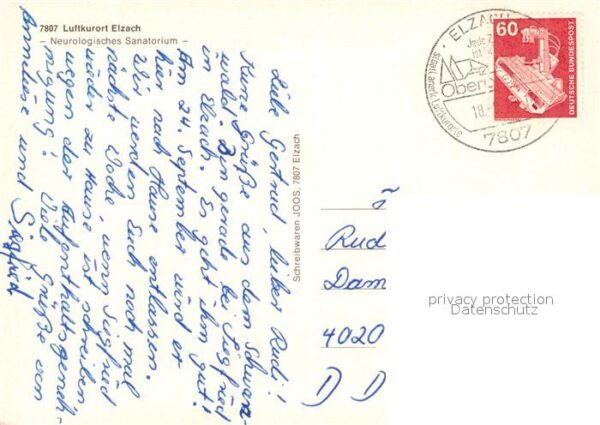 7807 Luftkurort Elzach
– Neurologisches Sanatorium –
Liebe Gertrud, lieber Rudi!
Kurze Grüße aus dem Schwarz-
wald. Bin gerade bei Siegfried
in Elzach. Es geht ihm gut!
Am 24. September wird er
hier nach Hause entlassen.
Wir werden Euch noch mal
nächste Woche, wenn Siegfried
wieder zu Hause ist schreiben
wegen der Aufenthaltsgeneh-
migung! Viele Grüße von
Annliese und Siegfried
Schreibwaren JOOS, 7807 Elzach
ELZACH
staatl. anerk. Luftkurort
18.
7807
60
DEUTSCHE BUNDESPOST
Rud
Dam
4020
privacy protection
Datenschutz